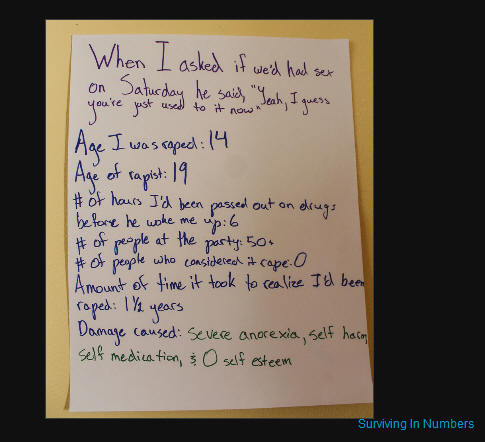 When I asked if we'd had sex
on Saturday he said, "Yeah, I guess
you're just used to it now"
Age I was raped: 14
Age of rapist: 19
# of hours I'd been passed out on drugs
before he woke me up: 6
# of people at the party: 50+
# of people who considered it rape: 0
Amount of time it took to realize I'd been
raped: 1 1/2 years
Damage caused: severe anorexia, self harm,
self medication, & 0 self esteem
Surviving In Numbers